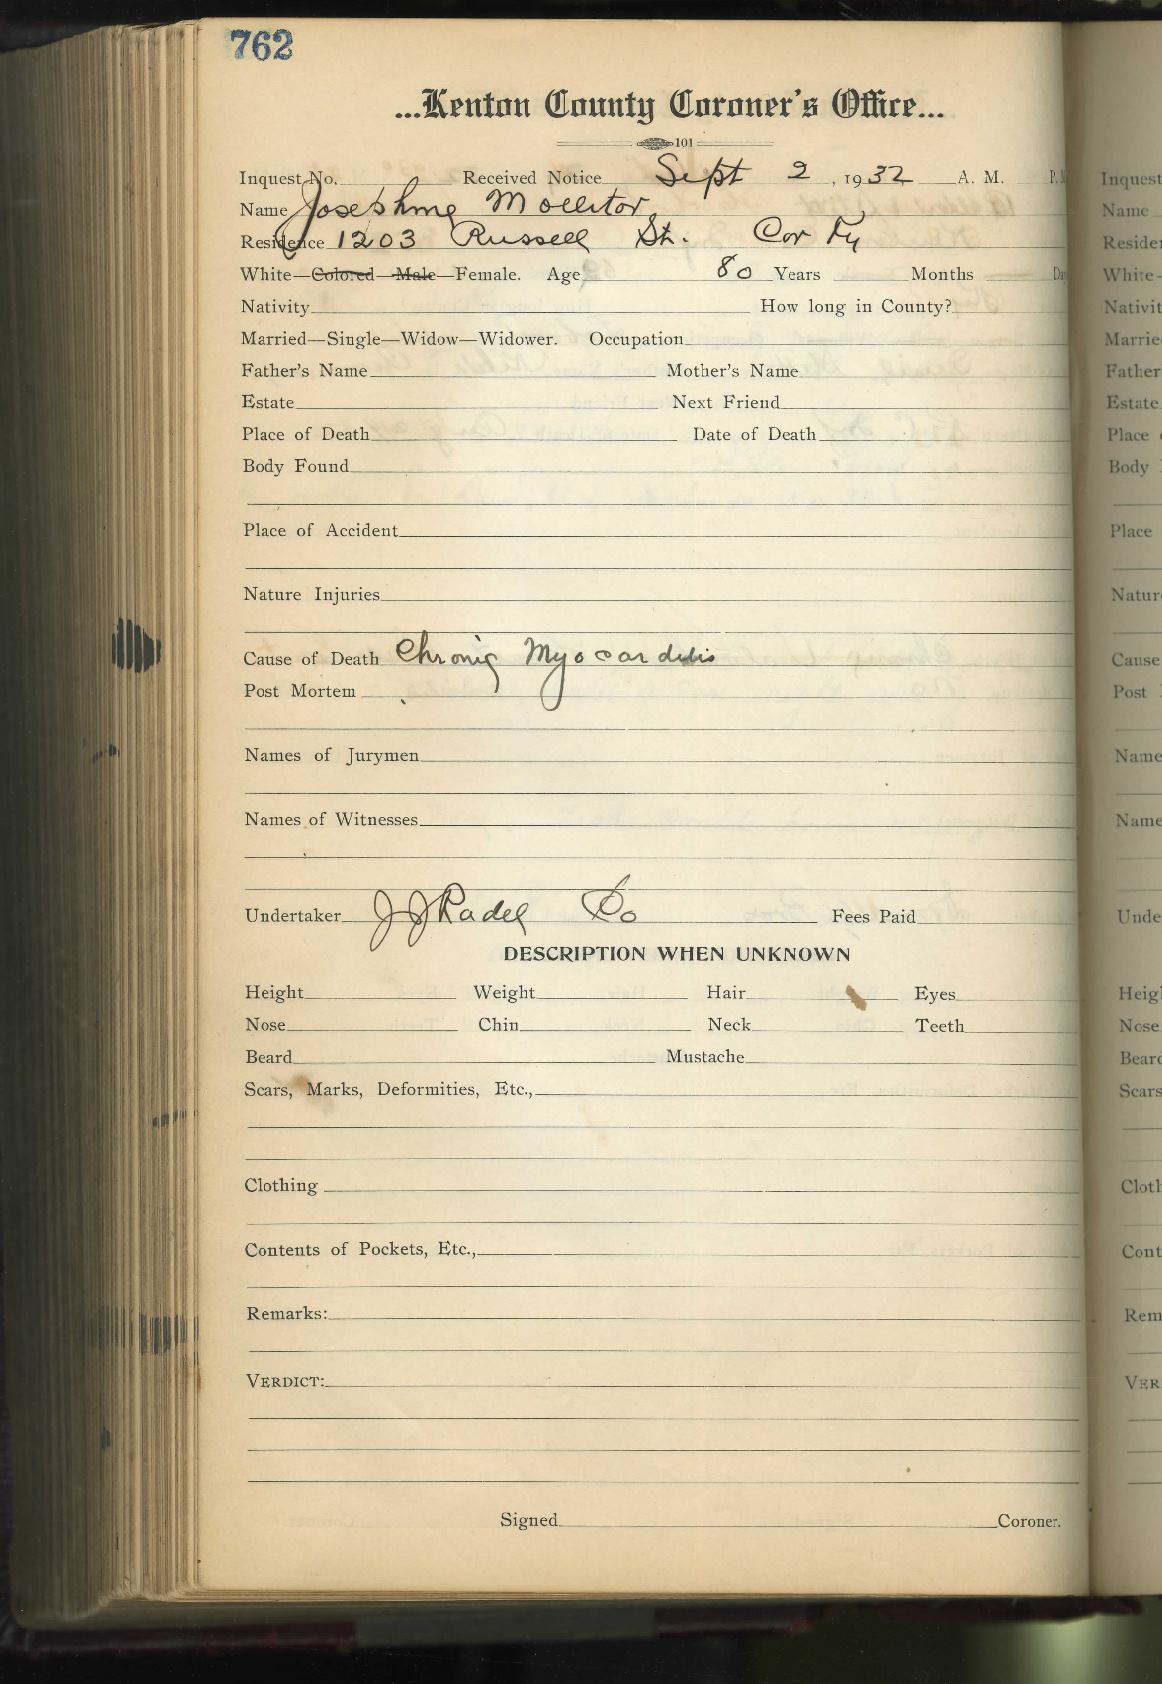 762
...Kenton County Coroner's Office...
101
Inquest No. Received Notice Sept 2, 1932 A. M. P.
Name Josephine Moellitor
Residence 1203 Russell St. Cov Ky
White—Colored—Male—Female. Age 80 Years Months Da
Nativity How long in County?
Married—Single—Widow—Widower. Occupation
Father's Name Mother's Name
Estate Next Friend
Place of Death Date of Death
Body Found
Place of Accident
Nature Injuries
Cause of Death Chronic Myocarditis
Post Mortem
Names of Jurymen
Names of Witnesses
Undertaker J J Radel Co Fees Paid
DESCRIPTION WHEN UNKNOWN
Height Weight Hair Eyes
Nose Chin Neck Teeth
Beard Mustache
Scars, Marks, Deformities, Etc.,
Clothing
Contents of Pockets, Etc.,
Remarks:
VERDICT:
Signed Coroner.
Inquest
Name
Reside
White-
Nativit
Marrie
Father
Estate
Place
Body
Place
Nature
Cause
Post
Name
Name
Unde
Heig
Nose
Beard
Scars
Cloth
Cont
Rem
VER